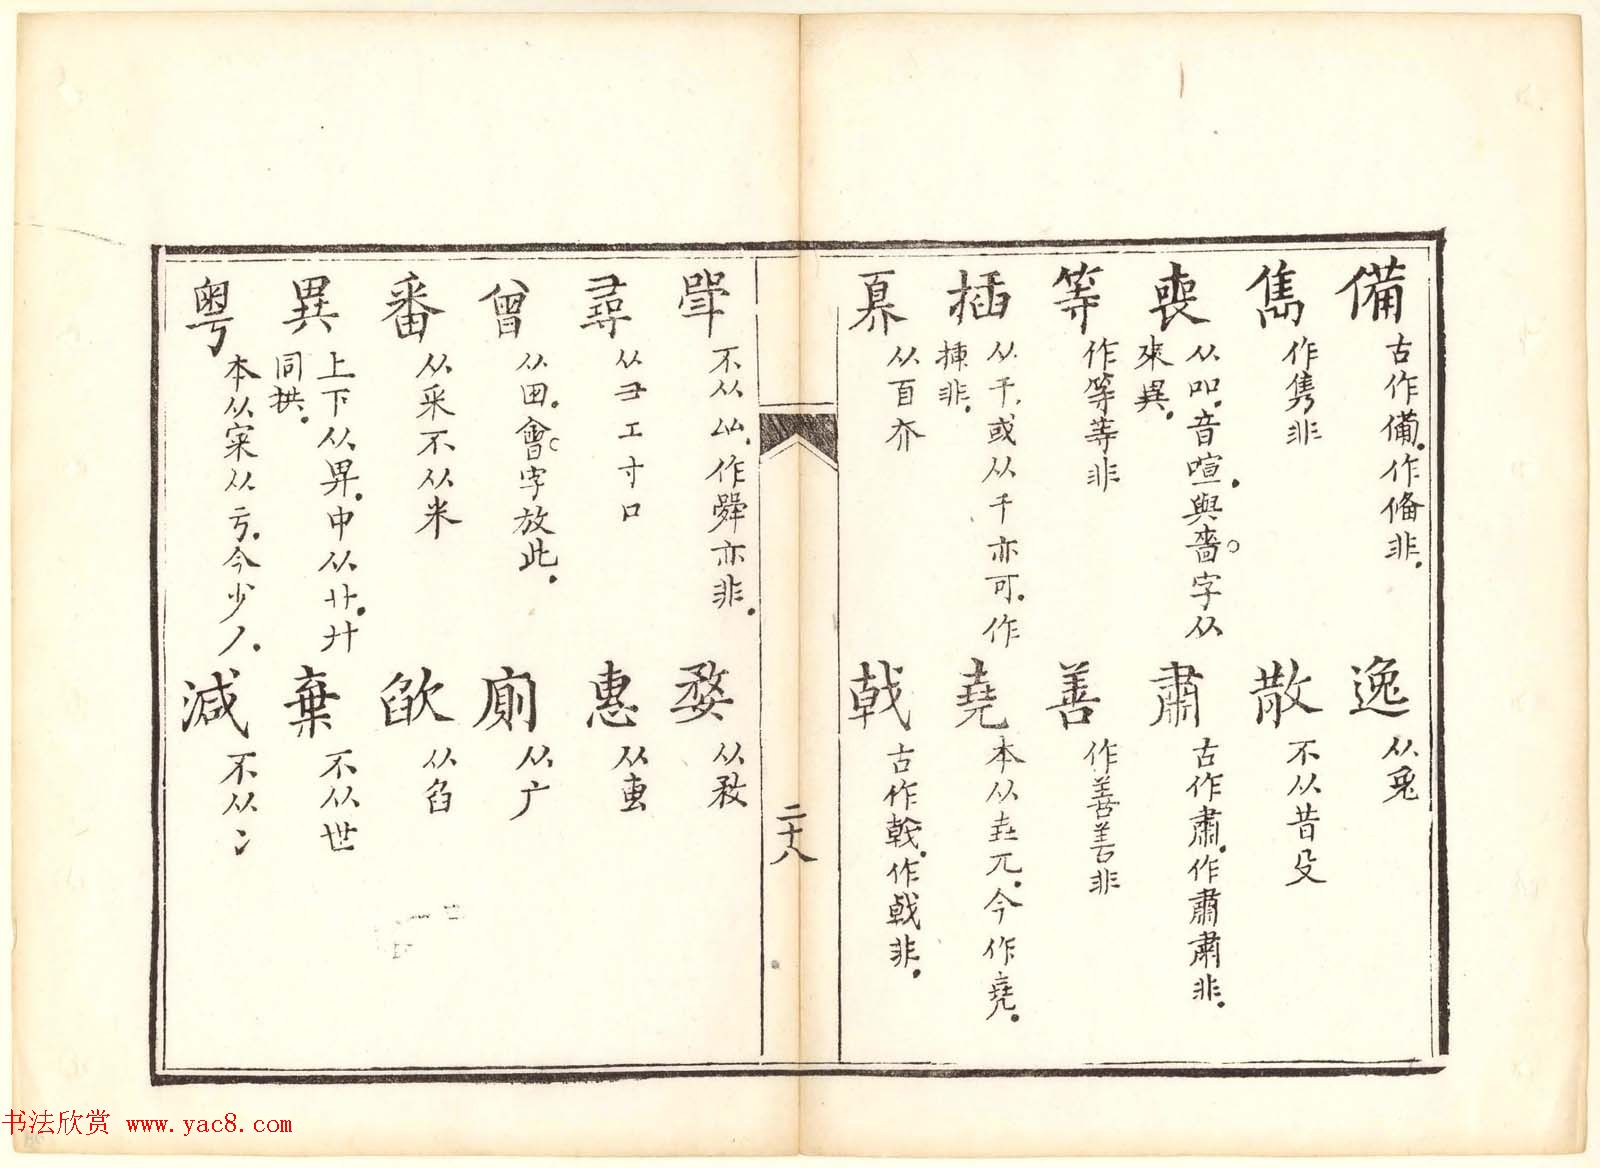 備 古作僃作俻非 逸 从兔
雋 作隽非 散 不从昔殳
喪 从吅音喧與嗇字从來異 肅 古作肅作肅肅非
等 作等等非 善 作善善非
插 从干或从千亦可作揷非 堯 本从垚兀今作堯
奡 从百夰 戟 古作戟作戟非
斝 不从 作斝亦非 婺 从敄
尋 从彐工寸口 惠 从叀
曾 从田會字放此 廁 从广
番 从釆不从米 欿 从臽
異 上下从舁中从廿廾同拱 棄 不从世
粤 本从寀从亏今少丿 減 不从冫
二十八
书法欣赏 www.yac8.com